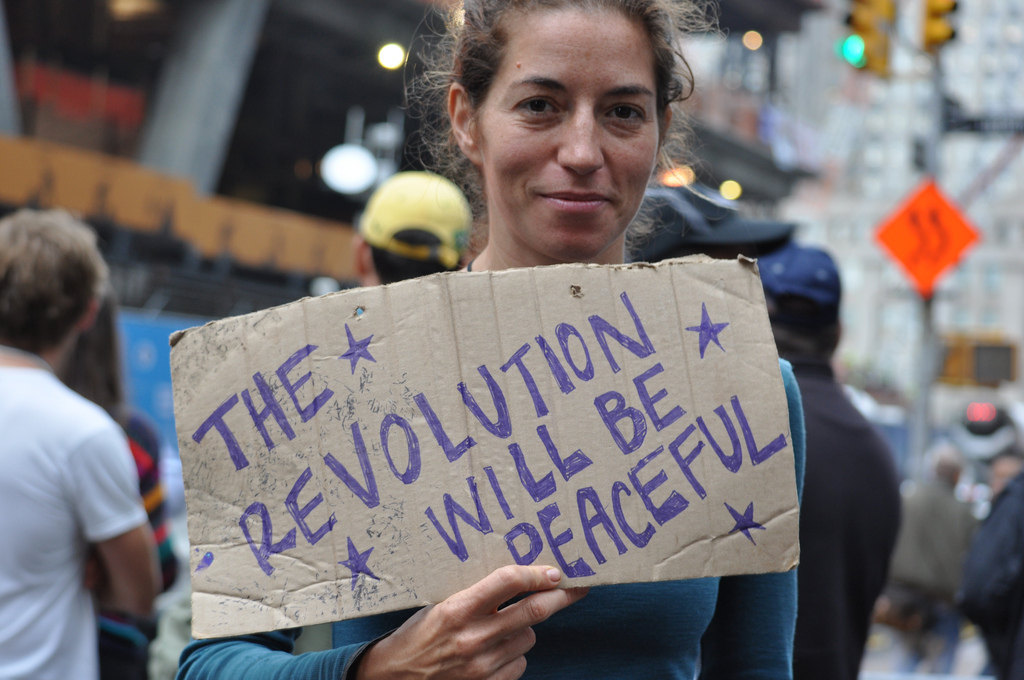 THE
REVOLUTION
WILL BE
PEACEFUL